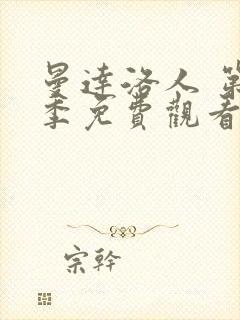 曼達洛人 第
季免費觀看
宗幹